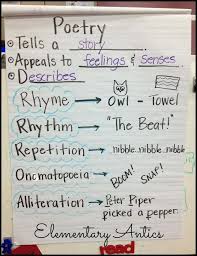 Poetry
Tells a story
Appeals to feelings & senses
Describes
Rhyme → Owl - Towel
Rhythm → "The Beat!"
Repetition → nibble..nibble..nibble
Onomatopoeia → BOOM! SNAP!
Alliteration → Peter Piper
picked a pepper.
Elementary Antics
read